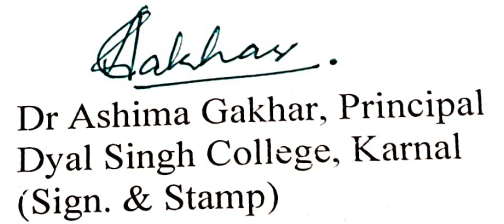 Gakhar.
Dr Ashima Gakhar, Principal
Dyal Singh College, Karnal
(Sign. & Stamp)